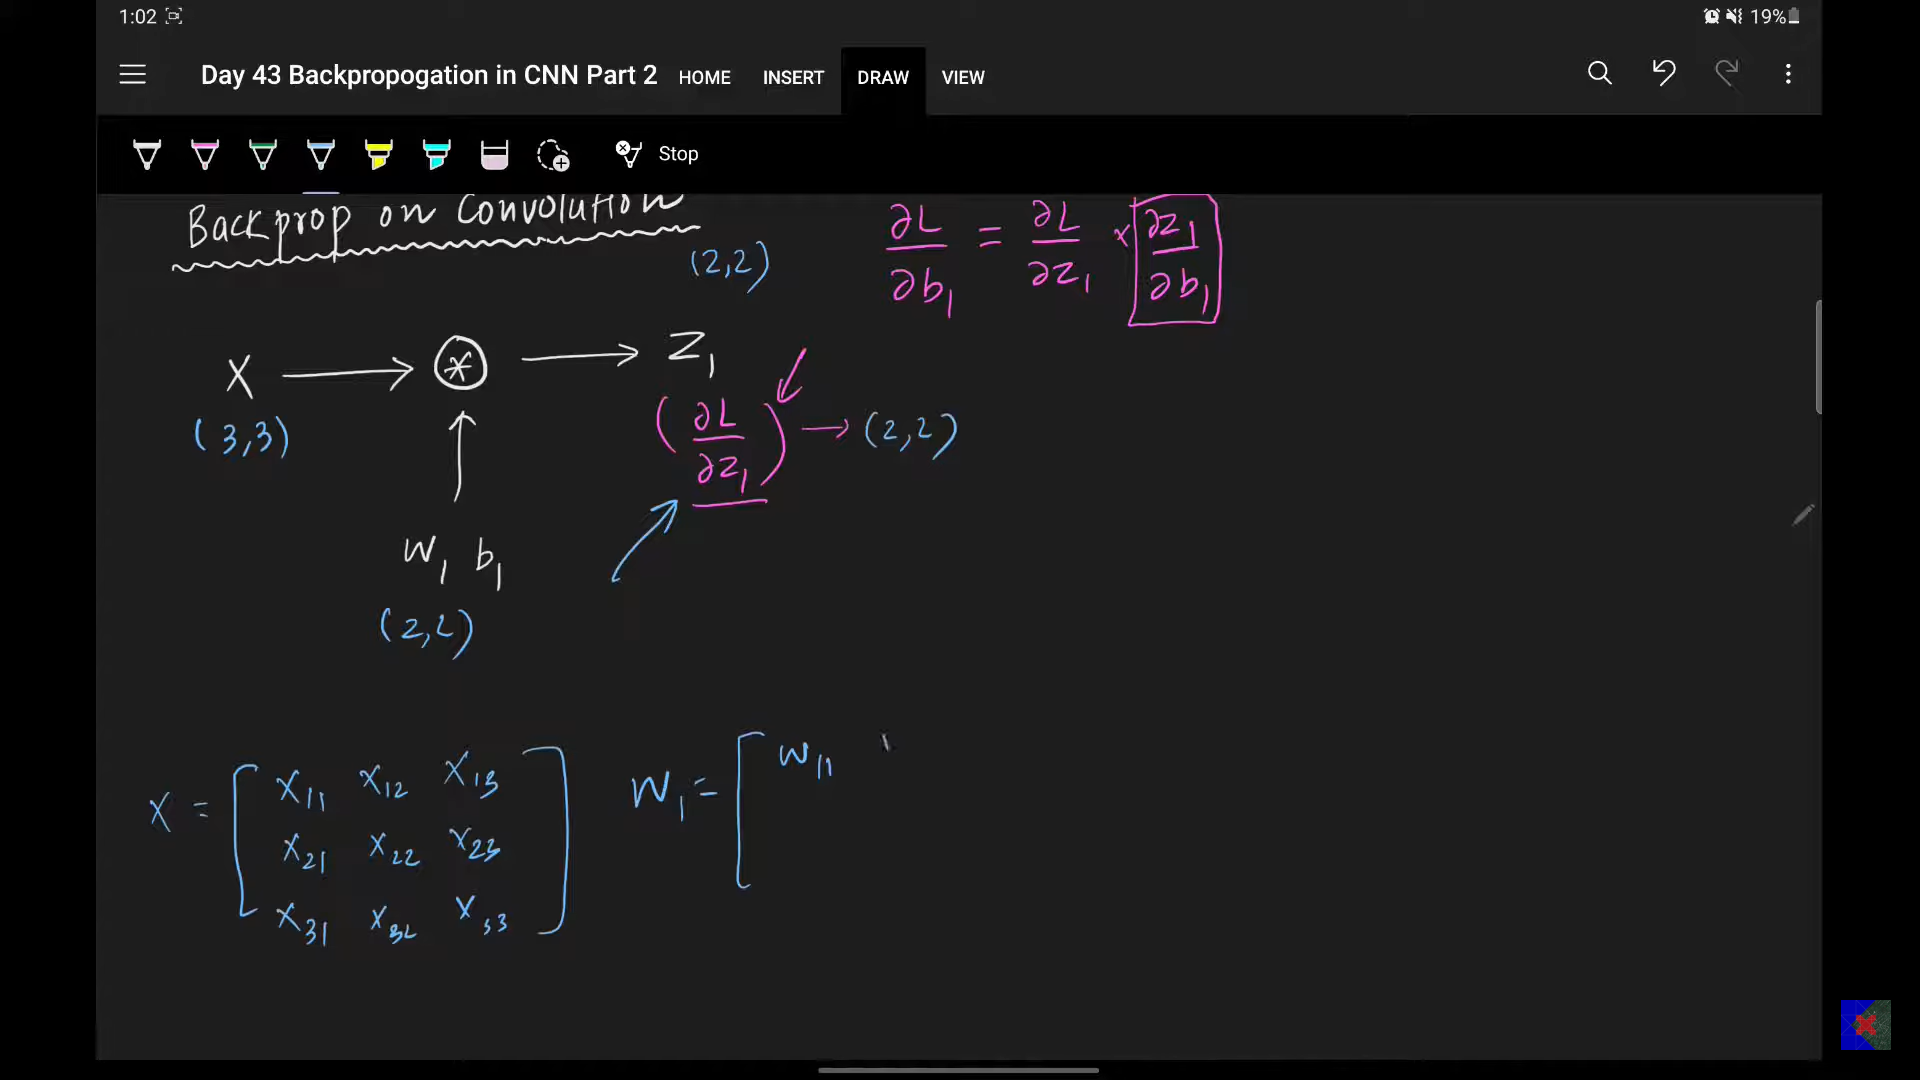 1:02 19%
Day 43 Backpropogation in CNN Part 2 HOME INSERT DRAW VIEW
Stop
Backprop on Convolution
∂L/∂b₁ = ∂L/∂z₁ × ∂z₁/∂b₁
(2,2)
X → * → Z₁
(3,3)
(∂L/∂z₁) → (2,2)
W₁ b₁
(2,2)
X = [ X₁₁ X₁₂ X₁₃
X₂₁ X₂₂ X₂₃
X₃₁ X₃₂ X₃₃ ]
W₁ = [ W₁₁